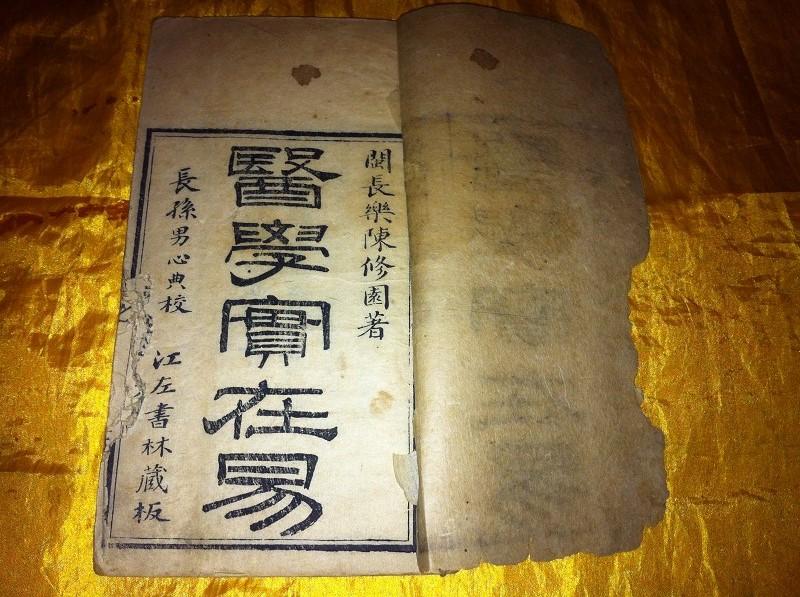 閩長樂陳修園著
醫學實在易
長孫男心典校
江左書林藏板